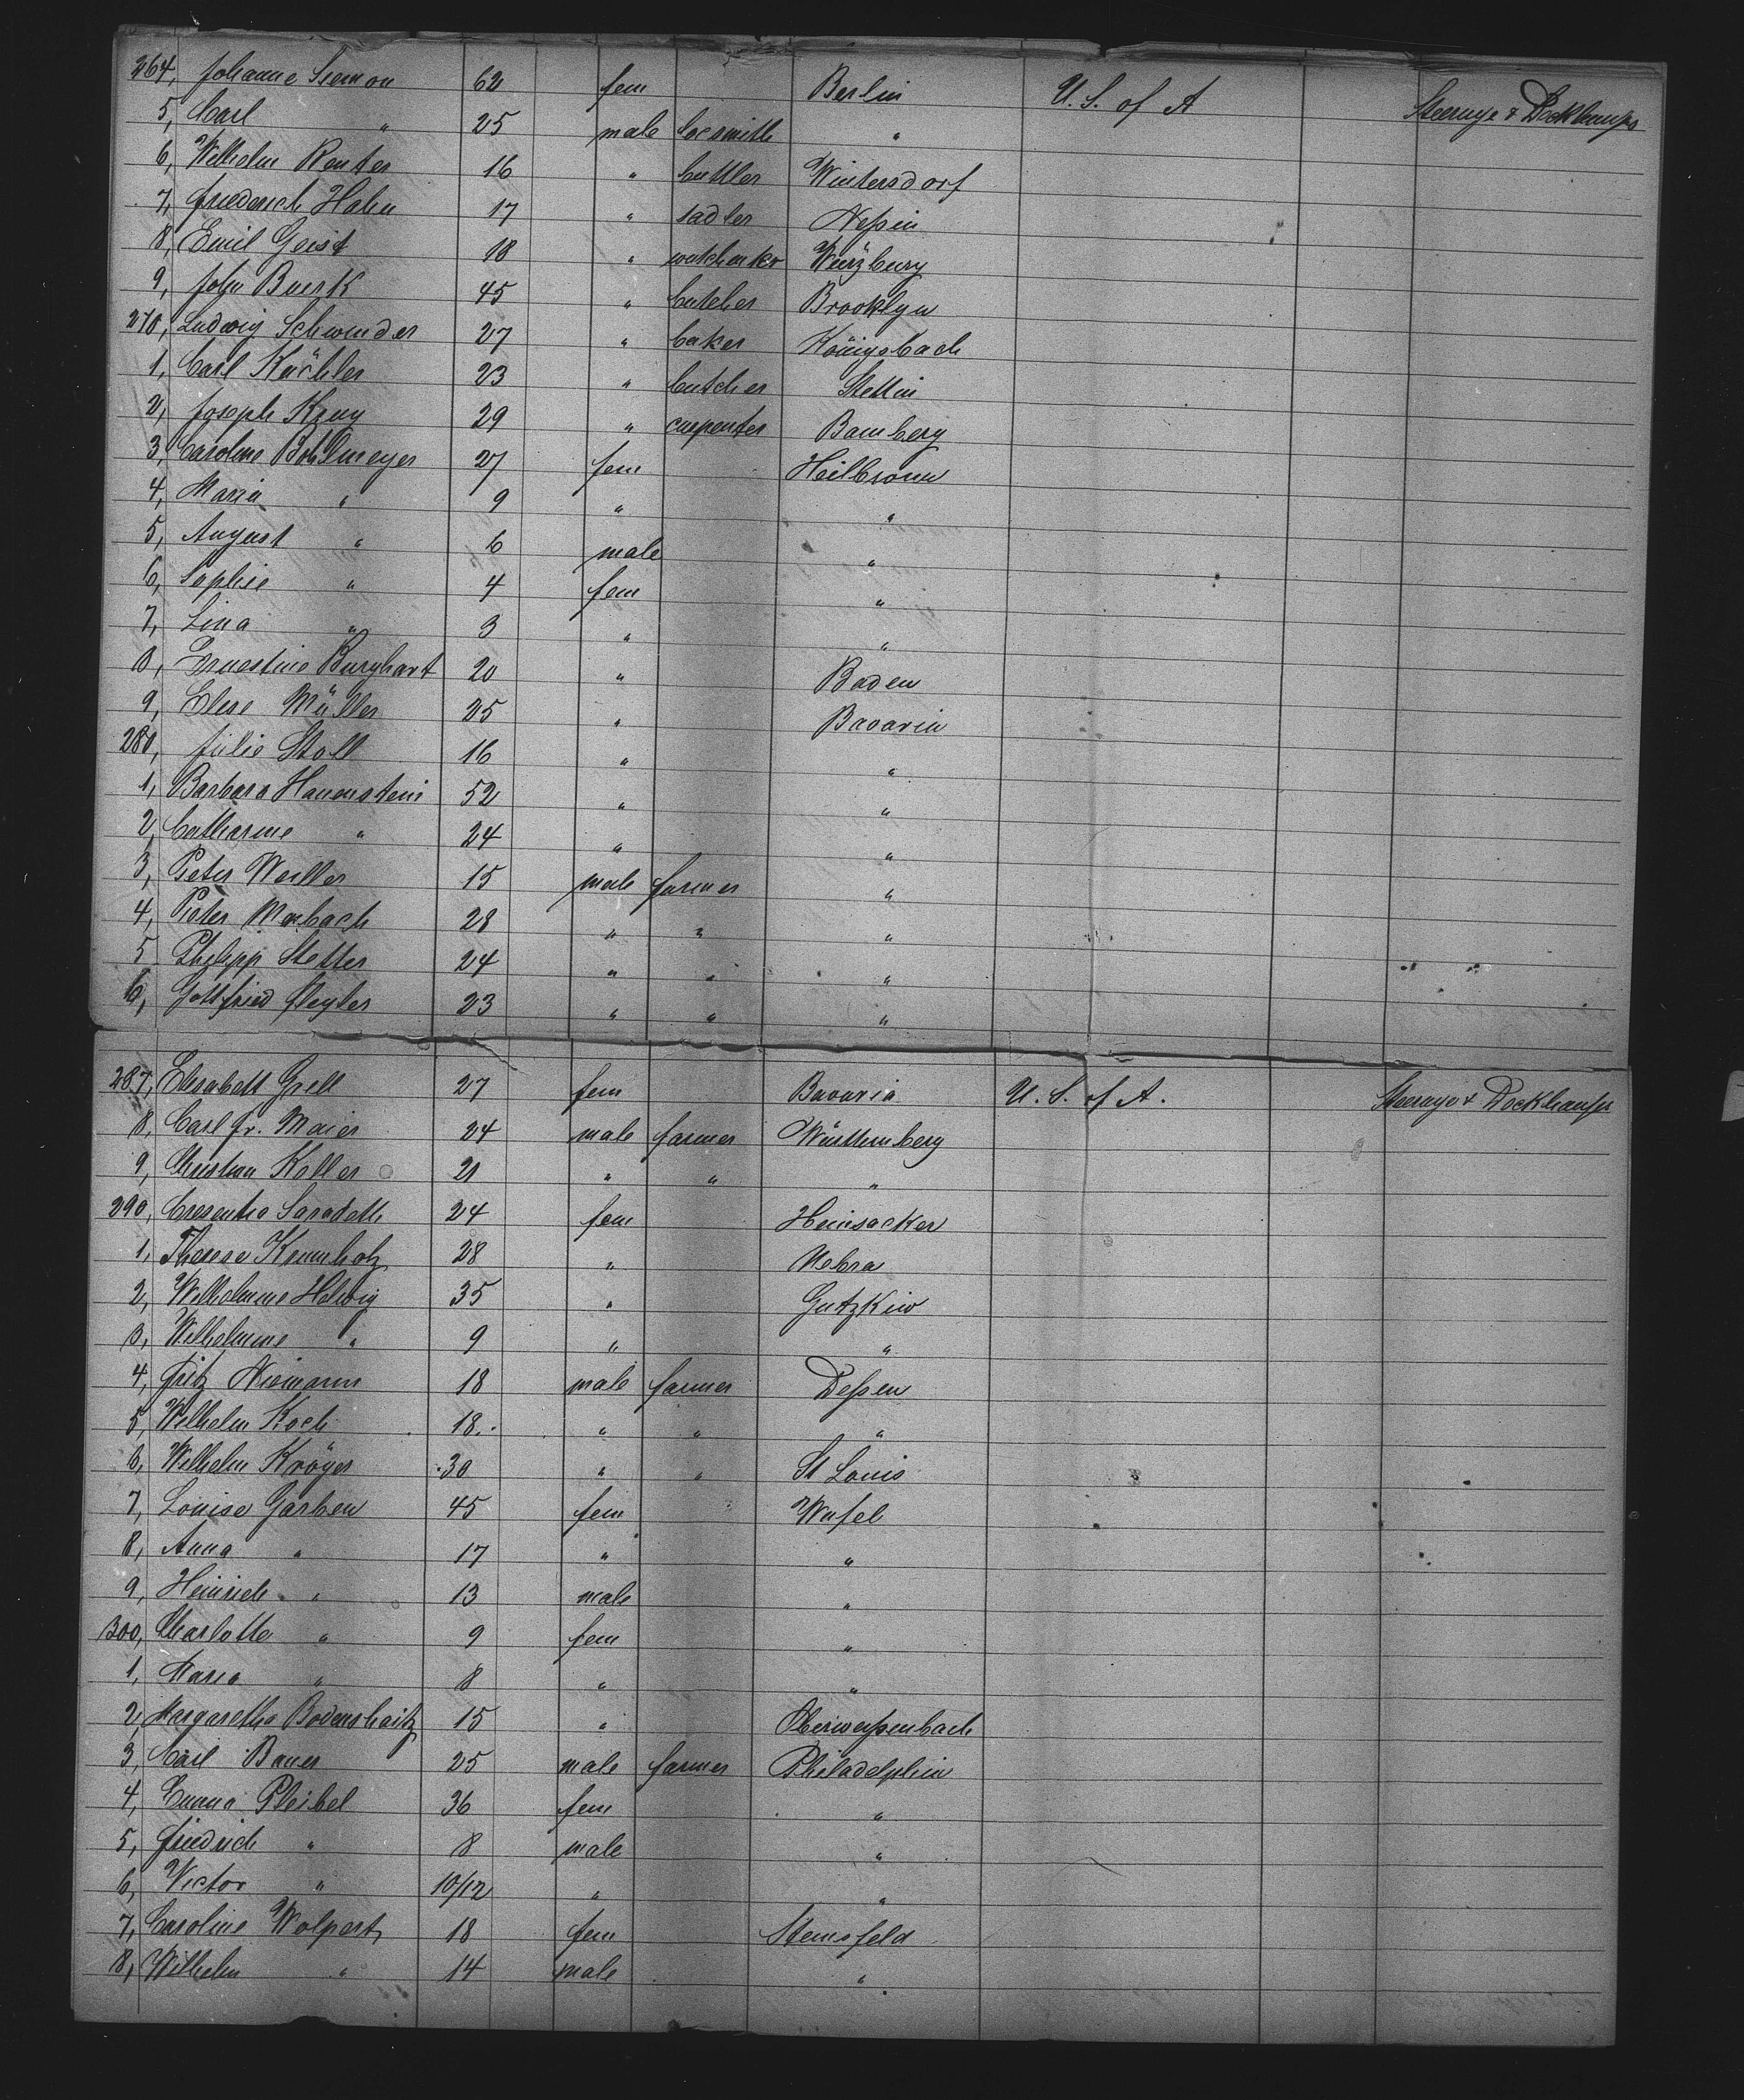 264, Johanne Siemon 62 fem Berlin U. S. of A Steerage & Deckhaus
5, Carl " 25 male locsmith "
6, Wilhelm Reuter 16 " buttler Wintersdorf
7, Friederich Hahn 17 " sadler Neßin
8, Emil Geist 18 " watchmker Würzburg
9, John Buerk 45 " butcher Brooklyn
270, Ludwig Schwinder 27 " baker Königsbach
1, Carl Küchler 23 " butcher Stettin
2, Joseph Krug 29 " carpenter Bamberg
3, Caroline Bohlmeyer 27 fem Heilbronn
4, Maria " 9 " "
5, August " 6 male "
6, Sophie " 4 fem "
7, Lina " 3 " "
8, Ernestine Burghart 20 " Baden
9, Elise Müller 25 " Bavaria
280, Julie Stoll 16 " "
1, Barbara Hauenstein 52 " "
2, Catharine " 24 " "
3, Peter Weiller 15 male farmer "
4, Peter Marbach 28 " " "
5 Philipp Stetter 24 " " "
6, Gottfried 23 " " "
287, Elisabeth Grell 27 fem Bavaria U. S. of A. Steerage & Deckhaus
8, Carl Fr. Maier 24 male farmer Württemberg
9, Christian Koller 21 " " "
290, Cresentia 24 fem Hainsacker
1, Therese Krumholz 28 " Nebra
2, Wilhelmine Helwig 35 " Gutzkiw
3, Wilhelmine " 9 " "
4, Fritz Niemann 18 male farmer Deßen
5, Wilhelm Koch 18 " " "
6, Wilhelm Kröger 30 " " St Louis
7, Louise Garben 45 fem
8, Anna " 17 " "
9, Heinrich " 13 male "
300, Charlotte " 9 fem "
1, Maria " 8 " "
2, Margaretha 15 " Oberweißenbach
3, Carl Bauer 25 male farmer Philadelphia
4, Emma Pleibel 36 fem "
5, Friedrich " 8 male "
6, Victor " 10/12 " "
7, Caroline Wolpert 18 fem Steinsfeld
8, Wilhelm " 14 male "